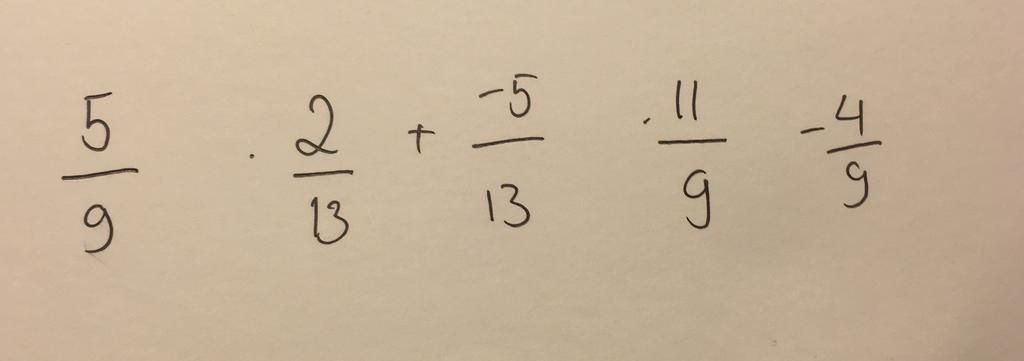 5/9 · 2/13 + -5/13 · 11/9 - 4/9